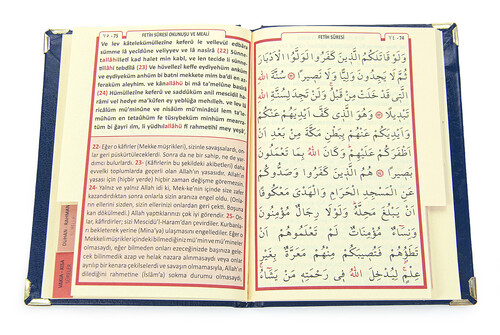 ٧٥ - 75
FETİH SÛRESİ OKUNUŞU ve MEALİ
Ve lev kâtelekümüllezîne keferû le vellevül edbâra
sümme lâ yecidûne veliyyen ve lâ nasîrâ (22) Sünne-
tallâhilletî kad halet min kabl, ve len tecide li sünne-
tillâhi tebdîlâ (23) Ve hüvellezî keffe eydiyehüm anküm
ve eydiyeküm anhüm bi batni mekkete mim ba'di en az-
feraküm aleyhim, ve kânallâhü bi mâ ta'melûne basîrâ
(24) Hümüllezîne keferû ve saddûküm anil mescidil ha-
râmi vel hedye ma'kûfen ey yeblüğa mehılleh, ve lev lâ
ricâlüm mü'minûne ve nisâüm mü'minâtül lem ta'le-
mûhüm en tetaûhüm fe tüsıybeküm minhüm mearra-
tüm bi ğayri ılm, li yüdhılallâhü fî rahmetihî mey yeşâ',
22- Eğer o kâfirler (Mekke müşrikleri), sizinle savaşsalardı, on-
lar geri püskürtüleceklerdi. Sonra da ne bir sahip, ne de yar-
dımcı bulurlardı. 23- (Kâfirlerin bu şekildeki akıbetleri) daha
evvelki toplumlarda geçerli olan Allah'ın yasasıdır. Allah'ın
yasası için (hiçbir yerde) hiçbir zaman değişme göremezsin.
24- Yalnız ve yalnız Allah idi ki, Mek-ke'nin içinde size zafer
kazandırdıktan sonra onlarla sizin aranıza engel oldu. (Onla-
rın ellerini sizden, sizin ellerinizi onlardan geri çekti. Boşuna
kan dökülmedi.) Allah yaptıklarınızı çok iyi görendir. 25- On-
lar, kâfirdirler; sizi Mescidü'l-Haram'dan çevirdiler. Kurbanla-
rın bekleterek yerine (Mina'ya) ulaşmasını engellediler. Eğer o
Mekkeli müşrikler içindeki bilmediğiniz mü'min ve mü'mineler
olmasaydı, eğer bilmeden onları ezeceğinizde başınıza gele-
cek bilinmedik azap ve helak nazara alınmasaydı veya onlar
ayrılıp bir kenara çekilselerdi ve savaşın olmamasıyla, Allah'ın
dilediğini rahmetine (İslâm'a) sokma durumu olmasaydı,
FETİH SÛRESİ
٧٤ - 74
وَلَوْ قَاتَلَكُمُ الَّذِينَ كَفَرُوا لَوَلَّوُا الْاَدْبَارَ
ثُمَّ لَا يَجِدُونَ وَلِيًّا وَلَا نَصِيرًا سُنَّةَ اللّٰهِ
الَّتِي قَدْ خَلَتْ مِنْ قَبْلُ وَلَنْ تَجِدَ لِسُنَّةِ اللّٰهِ
تَبْدِيلًا وَهُوَ الَّذِي كَفَّ اَيْدِيَهُمْ عَنْكُمْ
وَاَيْدِيَكُمْ عَنْهُمْ بِبَطْنِ مَكَّةَ مِنْ بَعْدِ اَنْ
اَظْفَرَكُمْ عَلَيْهِمْ وَكَانَ اللّٰهُ بِمَا تَعْمَلُونَ
بَصِيرًا هُمُ الَّذِينَ كَفَرُوا وَصَدُّوكُمْ
عَنِ الْمَسْجِدِ الْحَرَامِ وَالْهَدْيَ مَعْكُوفًا
اَنْ يَبْلُغَ مَحِلَّهُ وَلَوْلَا رِجَالٌ مُؤْمِنُونَ
وَنِسَاءٌ مُؤْمِنَاتٌ لَمْ تَعْلَمُوهُمْ اَنْ
تَطَؤُهُمْ فَتُصِيبَكُمْ مِنْهُمْ مَعَرَّةٌ بِغَيْرِ
عِلْمٍ لِيُدْخِلَ اللّٰهُ فِي رَحْمَتِهِ مَنْ يَشَاءُ